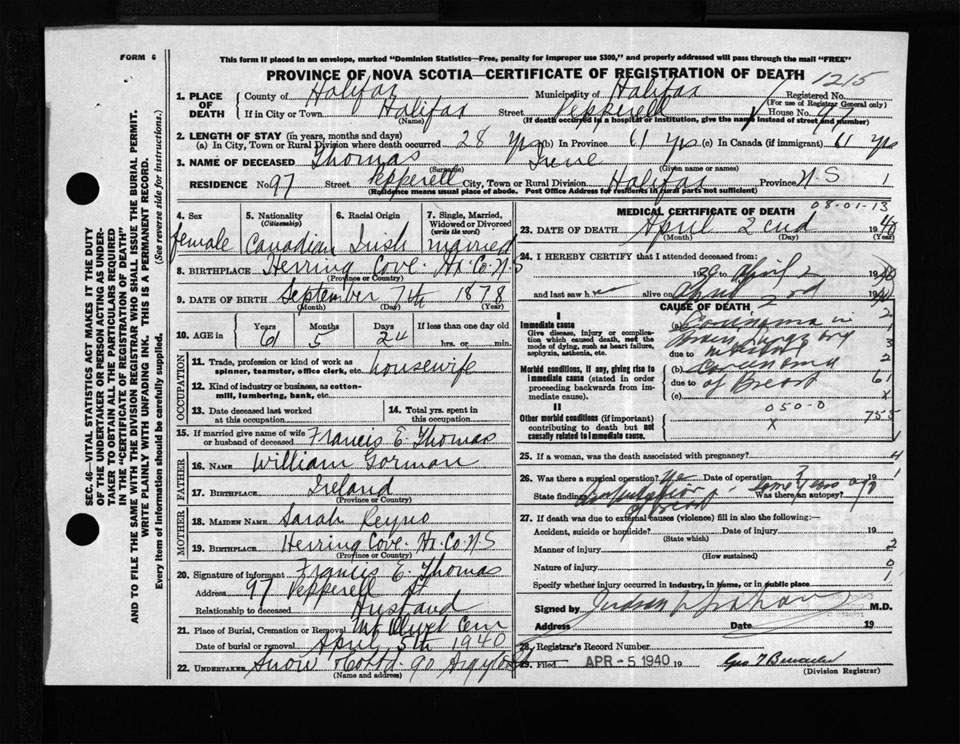 FORM 6
This form if placed in an envelope, marked "Dominion Statistics—Free, penalty for improper use $300," and properly addressed will pass through the mail "FREE"
PROVINCE OF NOVA SCOTIA—CERTIFICATE OF REGISTRATION OF DEATH
1215
1. PLACE OF DEATH
County of Halifax Municipality of Halifax Registered No.
(For use of Registrar General only)
If in City or Town Halifax Street Pepperell House No. 97
(Name) (If death occurred in a hospital or institution, give the name instead of street and number)
2. LENGTH OF STAY (in years, months and days)
(a) In City, Town or Rural Division where death occurred 28 yrs (b) In Province 61 yrs (c) In Canada (if immigrant) 61 yrs
3. NAME OF DECEASED Thomas Irene
(Surname) (Given name or names)
RESIDENCE No 97 Street Pepperell City, Town or Rural Division Halifax Province N-S 1
(Residence means usual place of abode. Post Office Address for residents in rural parts not sufficient)
4. Sex female
5. Nationality (Citizenship) Canadian
6. Racial Origin Irish
7. Single, Married, Widowed or Divorced (write the word) married
8. BIRTHPLACE Herring Cove Hx. Co. N-S
(Province or Country)
9. DATE OF BIRTH September 7th 1878
(Month) (Day) (Year)
10. AGE in Years 61 Months 5 Days 24 If less than one day old
hrs. or min.
OCCUPATION
11. Trade, profession or kind of work as spinner, teamster, office clerk, etc. housewife
12. Kind of industry or business, as cotton-mill, lumbering, bank, etc.
13. Date deceased last worked at this occupation
14. Total yrs. spent in this occupation
15. If married give name of wife or husband of deceased Francis E. Thomas
FATHER
16. NAME William Gorman
17. BIRTHPLACE Ireland
(Province or Country)
MOTHER
18. MAIDEN NAME Sarah Reyno
19. BIRTHPLACE Herring Cove Hx. Co. N-S
(Province or Country)
20. Signature of informant Francis E. Thomas
Address 97 Pepperell St
Relationship to deceased Husband
21. Place of Burial, Cremation or Removal Mt Olivet Cem
Date of burial or removal April 5th 1940
22. UNDERTAKER Snow & Co Ltd. 90 Argyle St
(Name and address)
MEDICAL CERTIFICATE OF DEATH 08-01-13
23. DATE OF DEATH April 2nd 1940
(Month) (Day) (Year)
24. I HEREBY CERTIFY that I attended deceased from:
April 2 19
and last saw h er alive on April 2nd 19
CAUSE OF DEATH
I
Immediate cause
Give disease, injury or complication which caused death, not the mode of dying, such as heart failure, asphyxia, asthenia, etc.
Carcinoma in
due to
Morbid conditions, if any, giving rise to immediate cause (stated in order proceeding backwards from immediate cause).
(b) Carcinoma
due to of Breast
(c)
II
Other morbid conditions (if important) contributing to death but not causally related to immediate cause.
050-0
x
25. If a woman, was the death associated with pregnancy?
26. Was there a surgical operation? Yes Date of operation 19
State findings Amputation of breast Was there an autopsy?
27. If death was due to external causes (violence) fill in also the following:
Accident, suicide or homicide? Date of injury 19
(State which)
Manner of injury
(How sustained)
Nature of injury
Specify whether injury occurred in industry, in home, or in public place
Signed by Judson V. Graham M.D.
Address Date 19
28. Registrar's Record Number
29. Filed APR - 5 1940 19
(Division Registrar)
SEC. 46—VITAL STATISTICS ACT MAKES IT THE DUTY OF THE UNDERTAKER OR PERSON ACTING AS UNDERTAKER TO OBTAIN ALL THE PARTICULARS REQUIRED IN THE "CERTIFICATE OF REGISTRATION OF DEATH"
AND TO FILE THE SAME WITH THE DIVISION REGISTRAR WHO SHALL ISSUE THE BURIAL PERMIT.
WRITE PLAINLY WITH UNFADING INK. THIS IS A PERMANENT RECORD.
Every item of information should be carefully supplied. (See reverse side for instructions.)